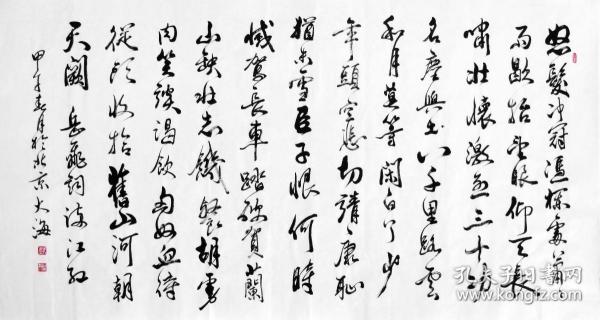 怒髮冲冠憑欄處瀟
雨歇抬望眼仰天長
嘯壯懷激烈三十功
名塵與土八千里路雲
和月莫等閑白了少
年頭空悲切靖康恥
猶未雪臣子恨何時
憾駕長車踏破賀蘭
山缺壯志饑餐胡虜
肉笑談渴飲匈奴血待
從頭收拾舊山河朝
天闕 岳飛詞滿江紅
甲午春月於北京大海
孔夫子旧书网
www.kongfz.com